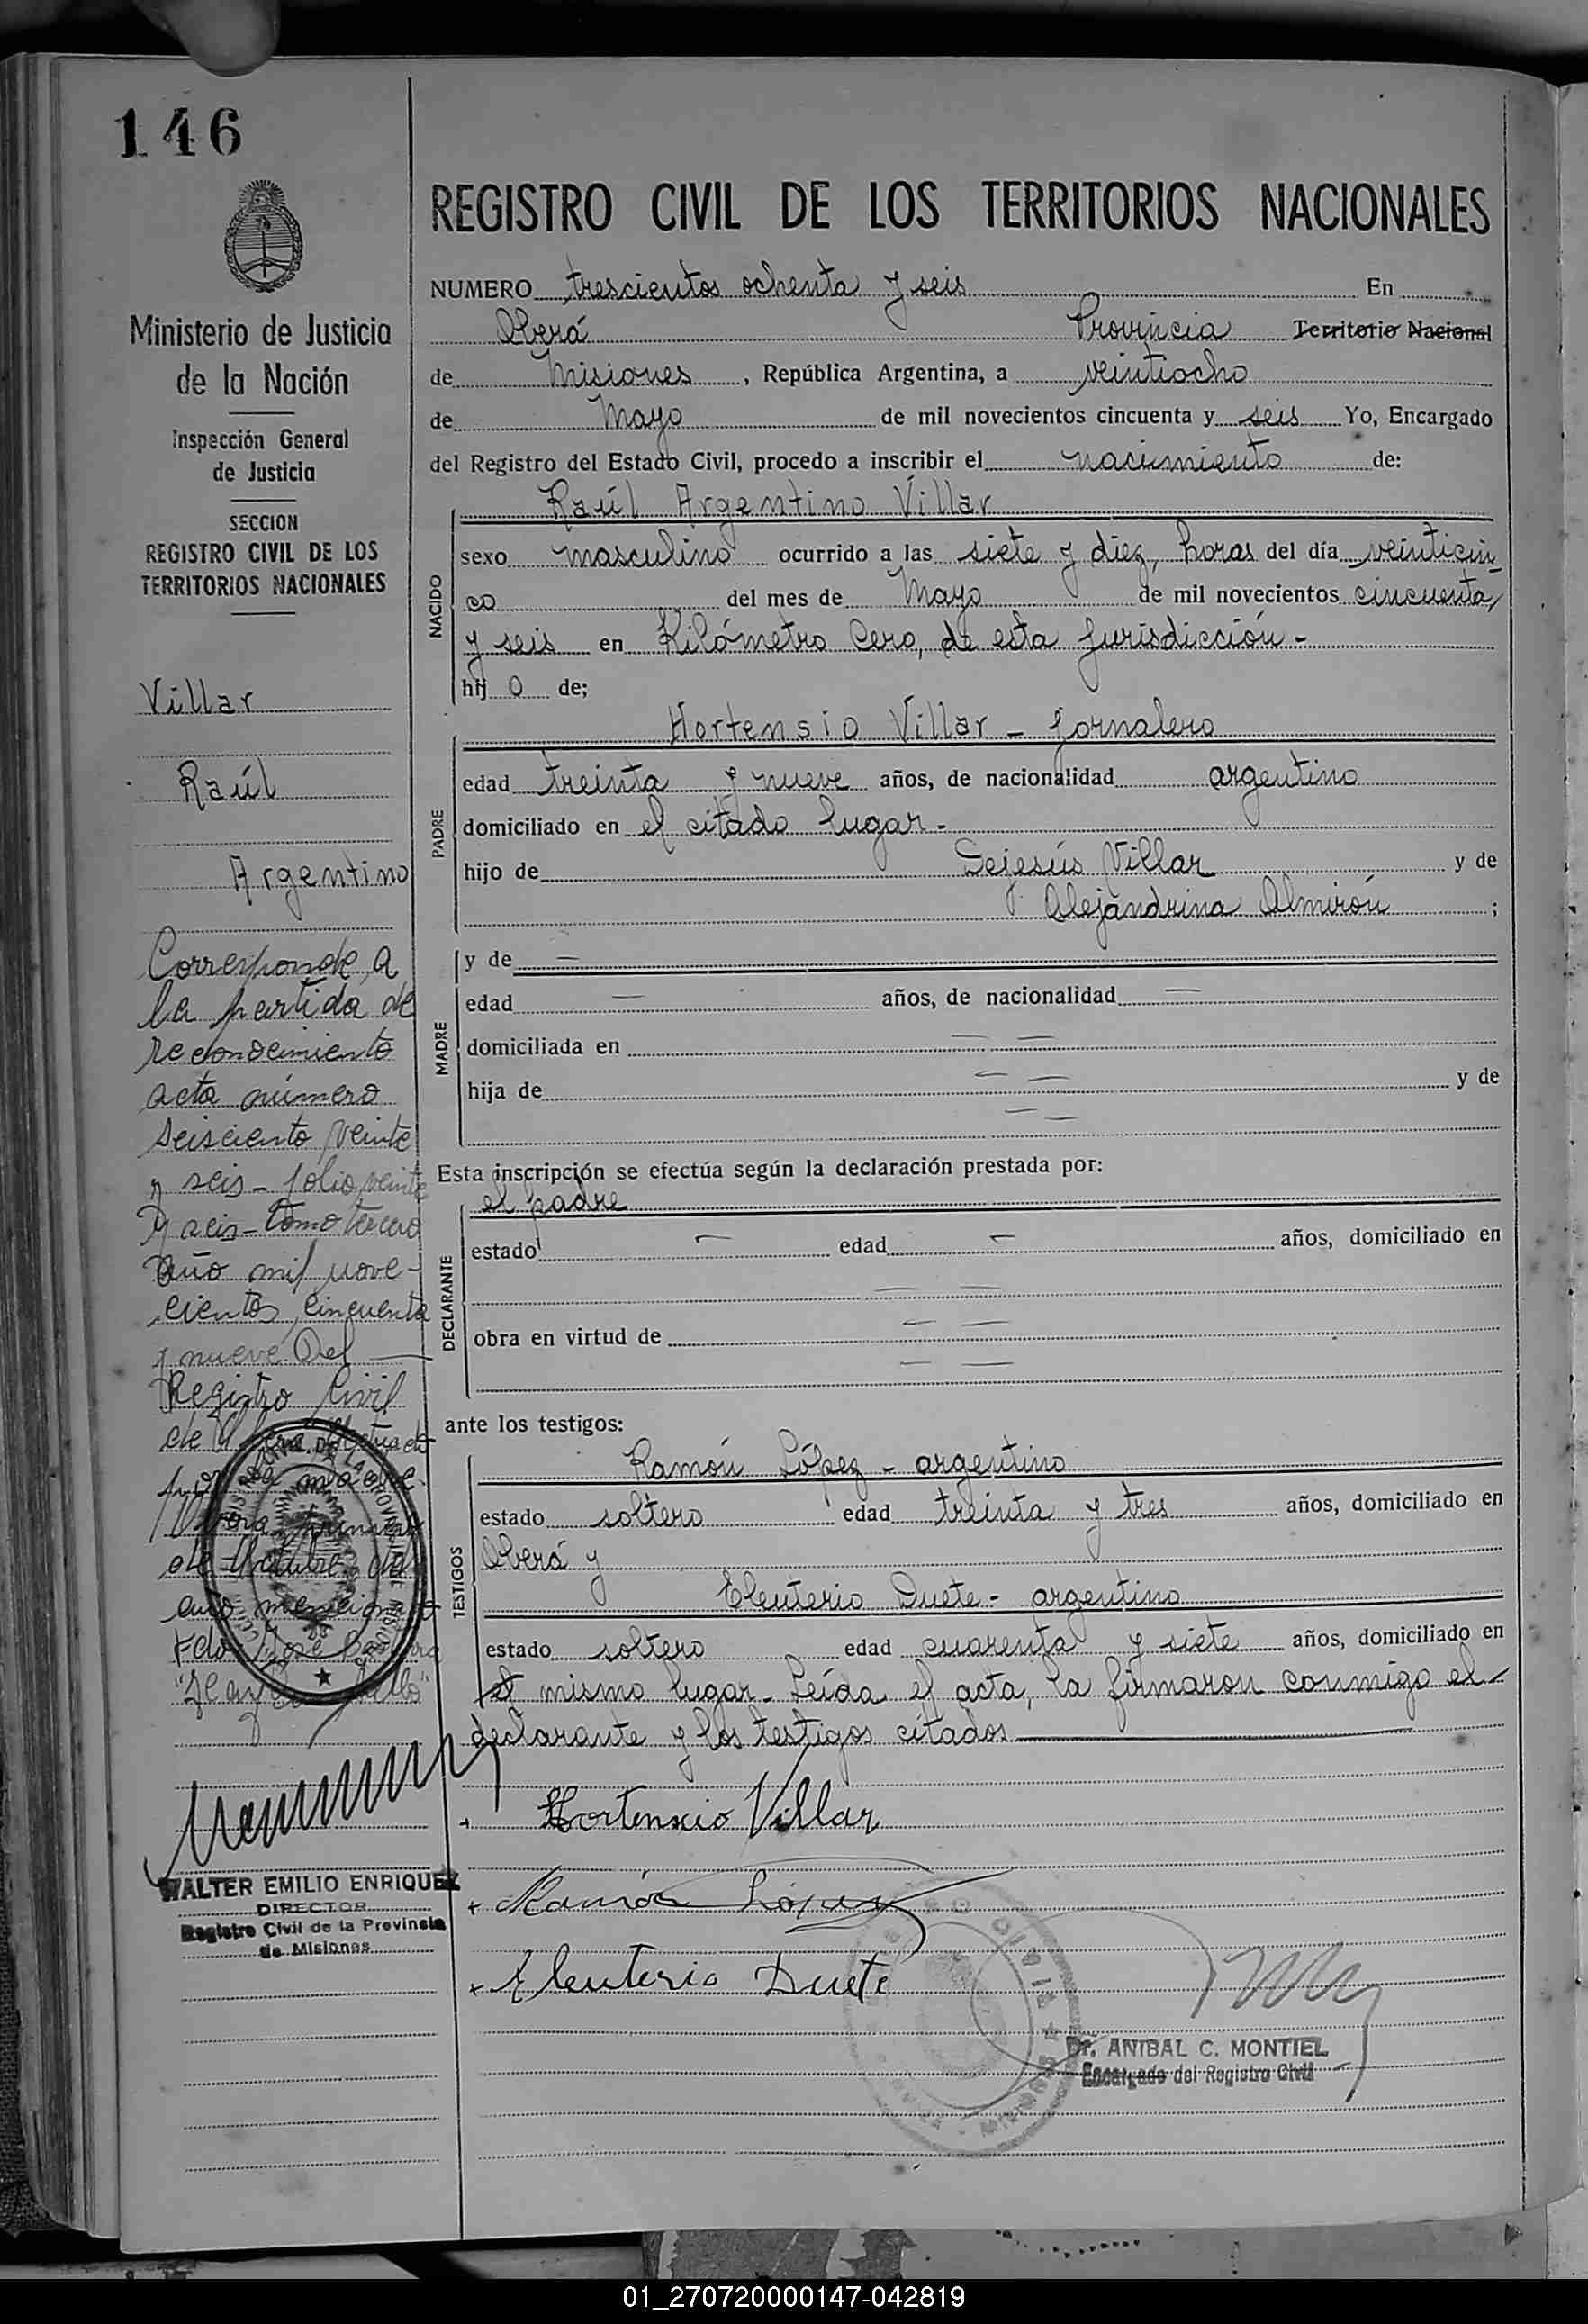 146
Ministerio de Justicia
de la Nación
Inspección General
de Justicia
SECCION
REGISTRO CIVIL DE LOS
TERRITORIOS NACIONALES
Villar
Raúl
Argentino
Corresponde a
la partida de
reconocimiento
acta número
seisciento veinte
y seis - folio veinte
y seis - tomo tercero
año mil nove-
cientos, cincuenta
y nueve. Del
Registro Civil
de
por la madre
de Octubre del
año mencionado
Fdo José
WALTER EMILIO ENRIQUEZ
DIRECTOR
Registro Civil de la Provincia
de Misiones
REGISTRO CIVIL DE LOS TERRITORIOS NACIONALES
NUMERO trescientos ochenta y seis En
Oberá Provincia Territorio Nacional
de Misiones, República Argentina, a veintiocho
de Mayo de mil novecientos cincuenta y seis Yo, Encargado
del Registro del Estado Civil, procedo a inscribir el nacimiento de:
NACIDO
Raúl Argentino Villar
sexo masculino ocurrido a las siete y diez, horas del día veinticin-
co del mes de Mayo de mil novecientos cincuenta
y seis en Kilómetro Cero, de esta jurisdicción -
hij o de;
PADRE
Hortensio Villar - jornalero
edad treinta y nueve años, de nacionalidad argentino
domiciliado en el citado lugar -
hijo de Dejesús Villar y de
Alejandrina Almirón ;
MADRE
y de —
edad — años, de nacionalidad —
domiciliada en — —
hija de — — y de
— —
Esta inscripción se efectúa según la declaración prestada por:
DECLARANTE
el padre
estado — edad — años, domiciliado en
— —
obra en virtud de — —
— —
ante los testigos:
TESTIGOS
Ramón López - argentino
estado soltero edad treinta y tres años, domiciliado en
Oberá y
Eleuterio Duete - argentino
estado soltero edad cuarenta y siete años, domiciliado en
el mismo lugar - Leída el acta, la firmaron conmigo el
declarante y los testigos citados
Hortensio Villar
Ramón López
Eleuterio Duete
Dr. ANIBAL C. MONTIEL
Encargado del Registro Civil
01_270720000147-042819